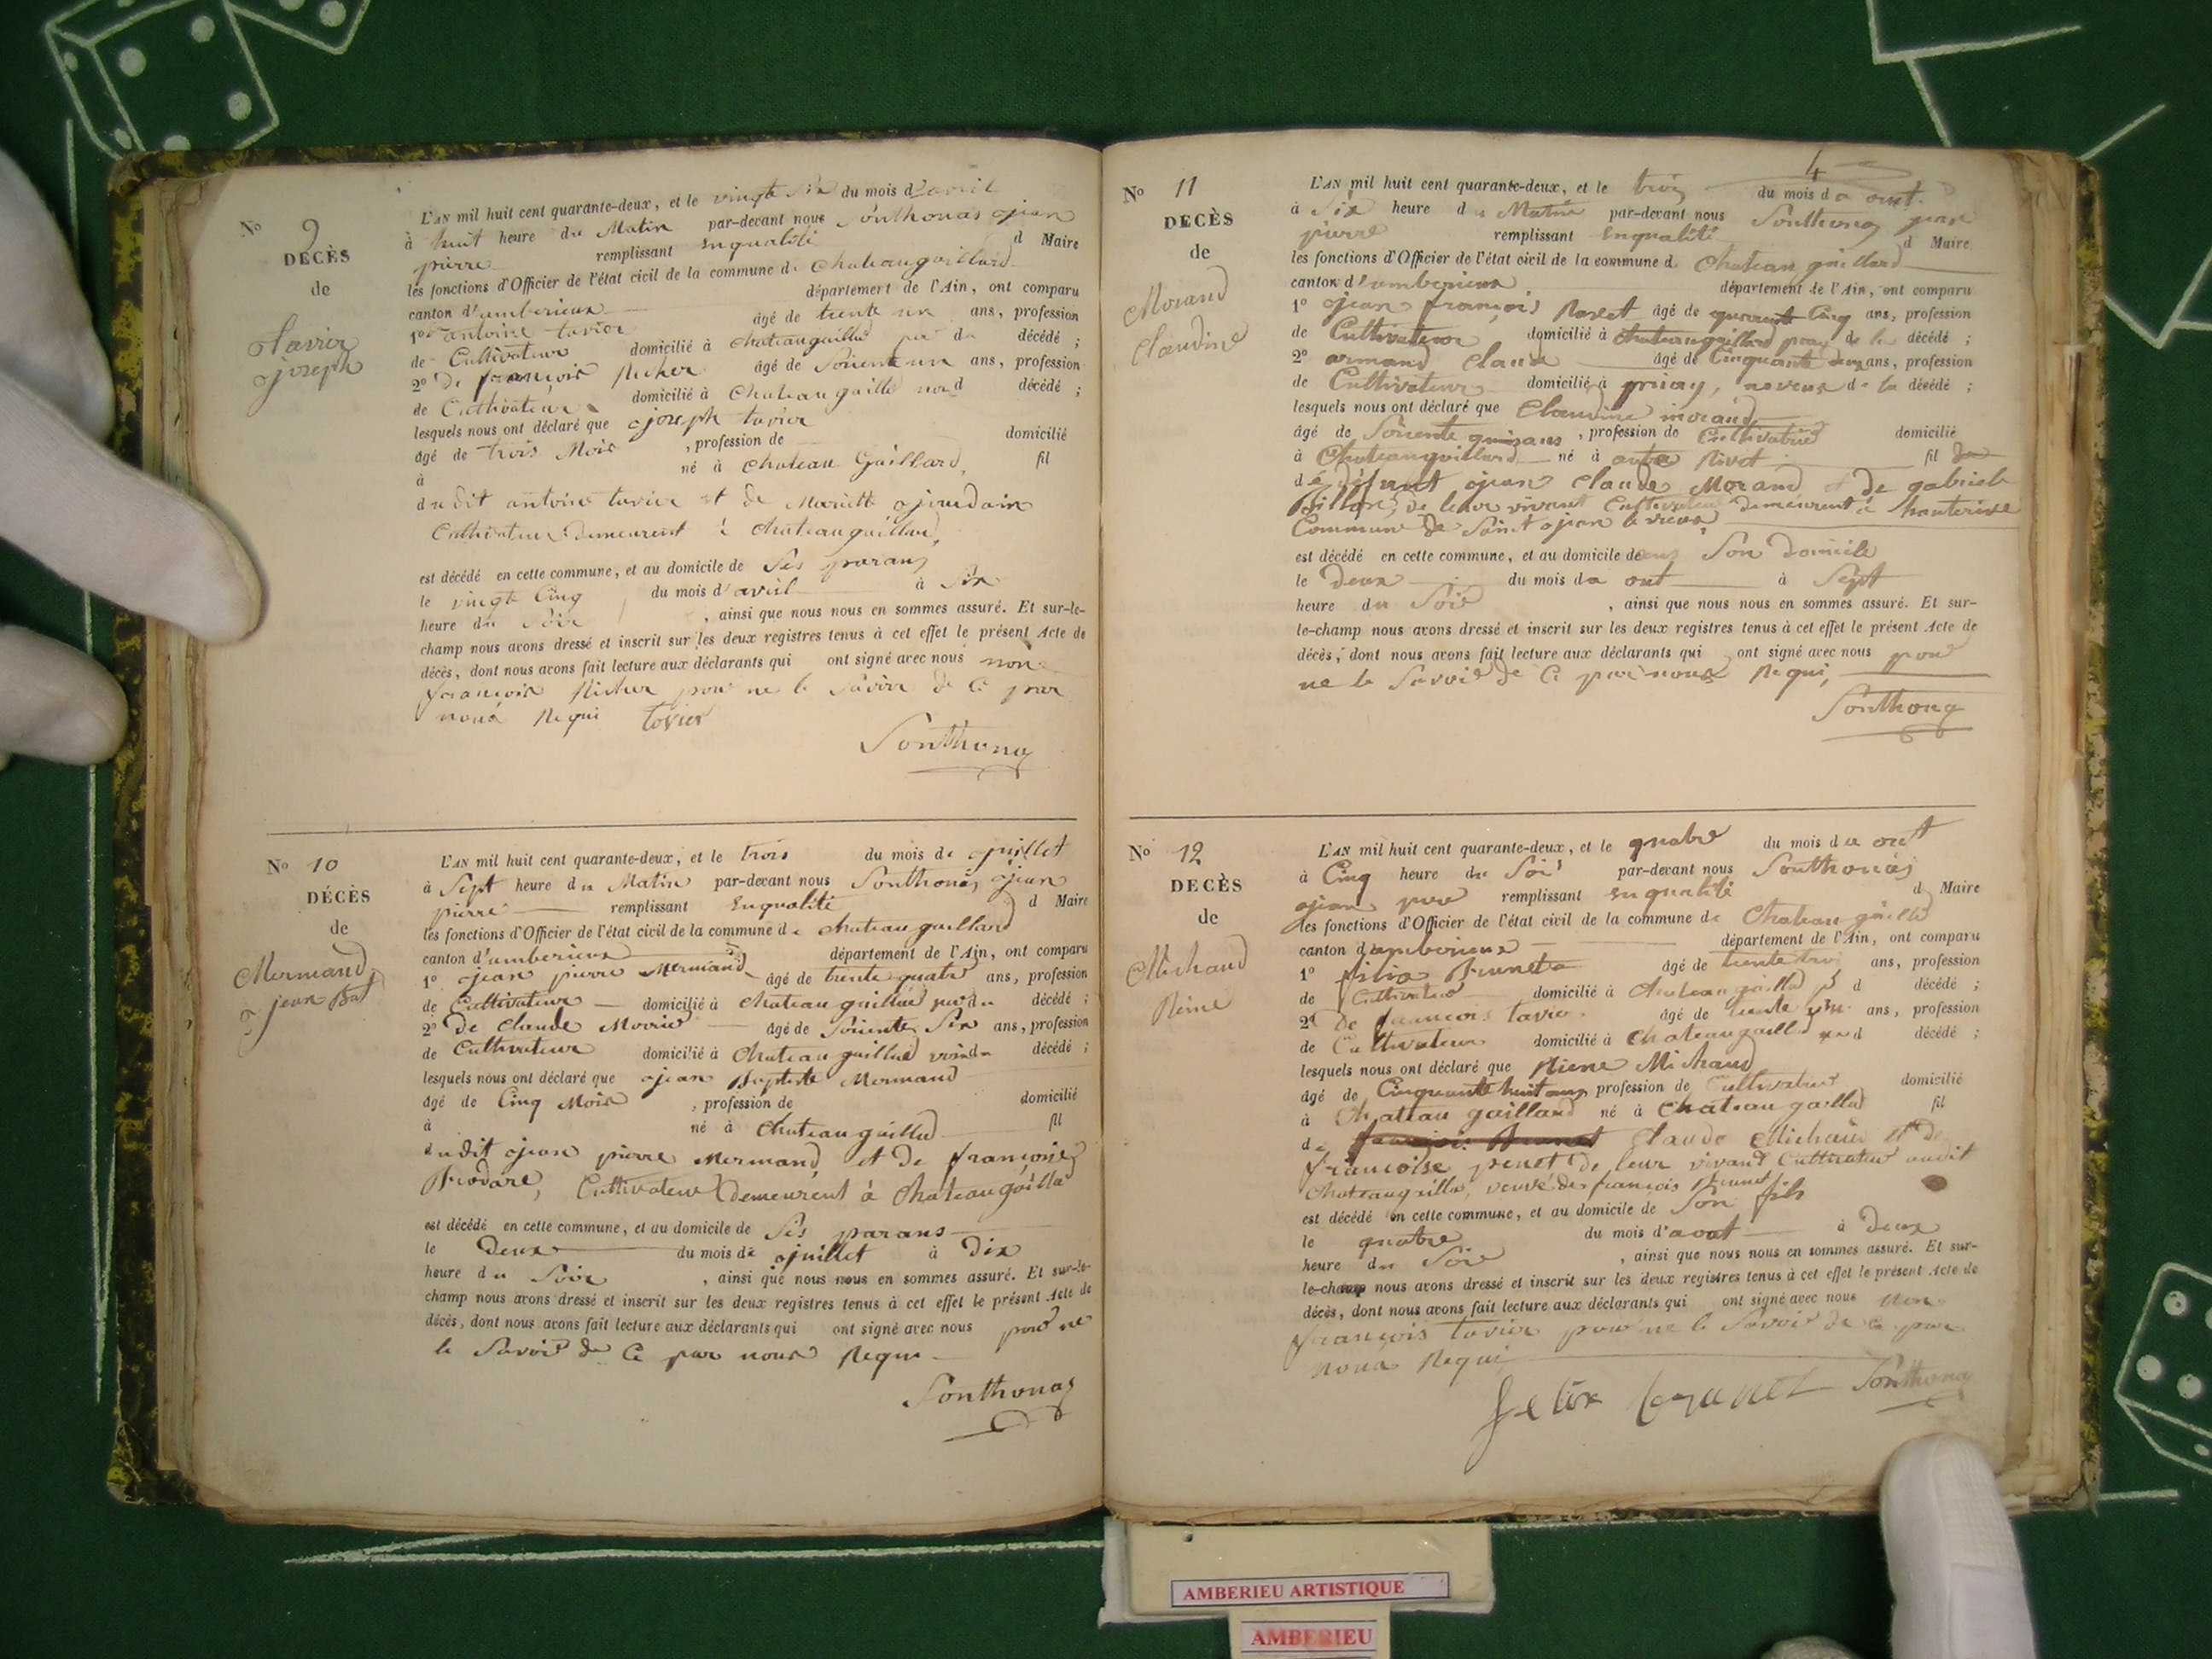 No 9
DECÈS
de
tavier
joseph
L'AN mil huit cent quarante-deux, et le vingt six du mois d'avril
à huit heure du Matin par-devant nous Sonthonas jean
pierre remplissant enqualité d Maire
les fonctions d'Officier de l'état civil de la commune de Chateaugaillard
canton d'amberieux département de l'Ain, ont comparu
1º antoine tavier âgé de trente un ans, profession
de Cultivateur domicilié à chateaugailld décédé ;
2º De françois Richer âgé de Soiente un ans, profession
de Cultivateur domicilié à Chateau gaille décédé ;
lesquels nous ont déclaré que joseph tavier
âgé de trois Mois , profession de domicilié
à né à chateau Gaillard, fil
dudit antoine tavier et de jourdain
Cultivateur demeurent à Chateaugaillard,
est décédé en cette commune, et au domicile de Ses parans
le vingt Cinq du mois d'avril à Six
heure du Soir , ainsi que nous nous en sommes assuré. Et sur-le-
champ nous avons dressé et inscrit sur les deux registres tenus à cet effet le présent Acte de
décès, dont nous avons fait lecture aux déclarants qui ont signé avec nous non
françois Richer pour ne le Savoir de Ce par
nous Requi tavier
Sonthonas
No 10
DÉCÈS
de
Mermand
jean Bat
L'AN mil huit cent quarante-deux, et le trois du mois de juillet
à Sept heure du Matin par-devant nous Sonthonas jean
pierre remplissant enqualité d Maire
les fonctions d'Officier de l'état civil de la commune de chateau gaillard
canton d'amberieux département de l'Ain, ont comparu
1º jean pierre Mermand âgé de trente quatre ans, profession
de Cultivateur domicilié à Chateau gaillad décédé ;
2º De Claude Morrier âgé de Soiente Six ans, profession
de Cultivateur domicilié à Chateau gaillad décédé ;
lesquels nous ont déclaré que jean Baptiste Mermand
âgé de Cinq Mois , profession de domicilié
à né à Chateau gaillad fil
dudit jean pierre Mermand et de françoise
Brodare, Cultivateur demeurent à Chateaugailla
est décédé en cette commune, et au domicile de Ses parans
le Deux du mois de juillet à Dix
heure du Soir , ainsi que nous nous en sommes assuré. Et sur-le-
champ nous avons dressé et inscrit sur les deux registres tenus à cet effet le présent Acte de
décès, dont nous avons fait lecture aux déclarants qui ont signé avec nous pour ne
le Savoir de Ce par nous Requi
Sonthonas
4
No 11
DECÈS
de
Morand
Claudine
L'AN mil huit cent quarante-deux, et le trois du mois d a out
à Six heure du Matin par-devant nous Sonthonas jean
pierre remplissant enqualité d Maire
les fonctions d'Officier de l'état civil de la commune de Chateau gaillard
canton d'amberieux département de l'Ain, ont comparu
1º jean françois âgé de quarente Cinq ans, profession
de Cultivateur domicilié à chateaugaillard de la décédé ;
2º armand Claude âgé de Cinquante deux ans, profession
de Cultivateur domicilié à priay, neveux de la décédé ;
lesquels nous ont déclaré que Claudine morand
âgé de Soiente quinsans , profession de Cultivatrice domicilié
à Chateaugaillard né à fil
de défunt jean Claude Morand et de gabriele
Billion, de leur vivant Cultivateur demeurent à hauterive
Commune de Saint jean le vieux
est décédé en cette commune, et au domicile dans Son domicile
le Deux du mois da out à Sept
heure du Soir , ainsi que nous nous en sommes assuré. Et sur-
le-champ nous avons dressé et inscrit sur les deux registres tenus à cet effet le présent Acte de
décès, dont nous avons fait lecture aux déclarants qui ont signé avec nous pour
ne le Savoir de Ce par nous Requi,
Sonthonas
No 12
DECÈS
de
Michaud
Reine
L'AN mil huit cent quarante-deux, et le quatre du mois da out
à Cinq heure du Soir par-devant nous Sonthonas
jean remplissant enqualité d Maire
les fonctions d'Officier de l'état civil de la commune de Chateau gaillard
canton d'amberieux département de l'Ain, ont comparu
1º Brunet âgé de trente trois ans, profession
de Cultivateur domicilié à Chateau gaillad d décédé ;
2º De françois tavier âgé de trente ans, profession
de Cultivateur domicilié à Chateaugaillad décédé ;
lesquels nous ont déclaré que Riene Michaud
âgé de Cinquante huit ans profession de Cultivatrice domicilié
à Chateau gaillard né à Chateau gaillad fil
de Claude Michaud et De
françoise penet De leur vivant Cultivateur audit
Chateaugailla, veuve de françois Brunet
est décédé en cette commune, et au domicile de Son fils
le quatre du mois d'aout à Deux
heure du Soir , ainsi que nous nous en sommes assuré. Et sur-
le-champ nous avons dressé et inscrit sur les deux registres tenus à cet effet le présent Acte de
décès, dont nous avons fait lecture aux déclarants qui ont signé avec nous Non
françois tavier pour ne le Savoir de Ce par
nous Requi
felix Sonthonas
AMBERIEU ARTISTIQUE
AMBERIEU